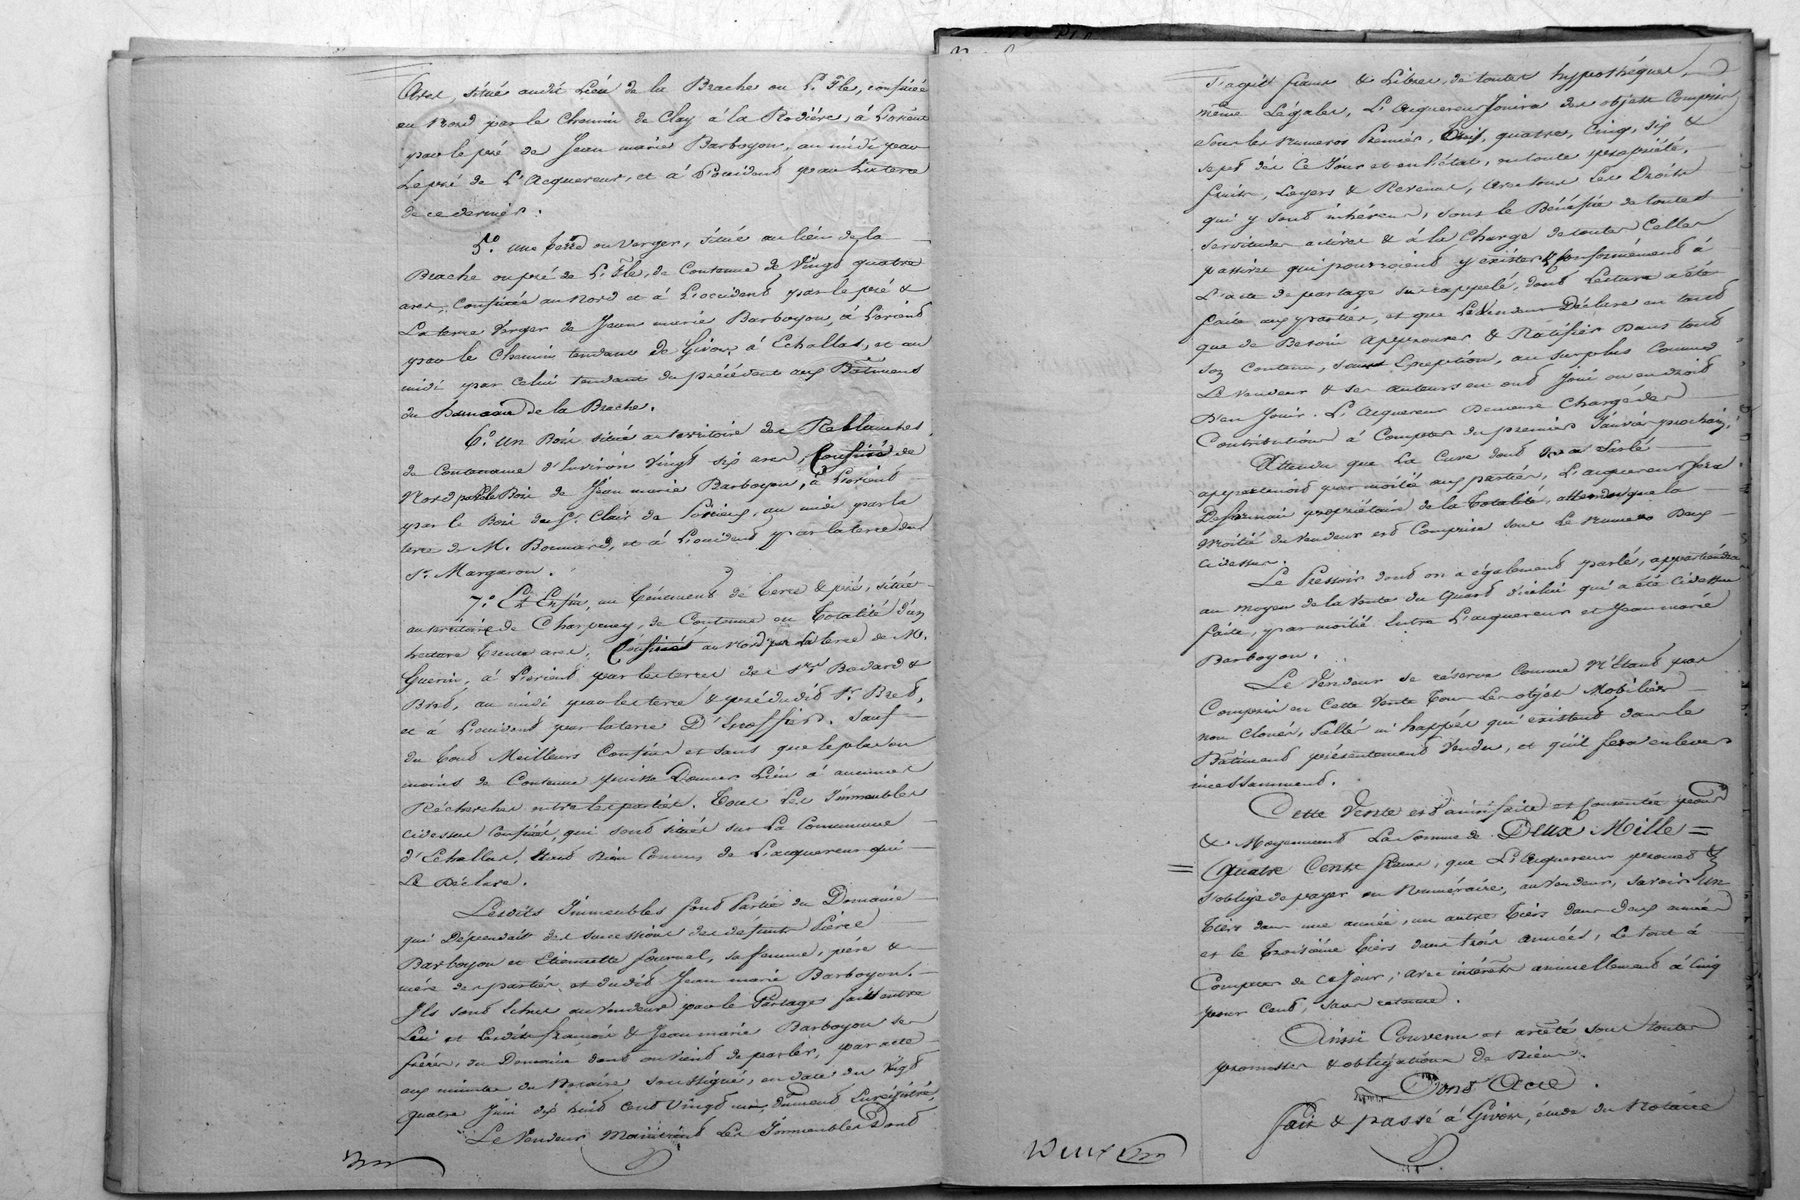 Ares, situé audit Lieu de la Brache ou L'Ile, confinée
au Nord par le Chemin de Clay à la Rodière, à L'orient
par le pré de Jean marie Barboyon, au midi par
Le pré de L'Acquereur, et à L'occident par La terre
de ce dernier.
5.° une terre ou verger, située au lieu de la
Brache ou pré de L'Ile, de Contenue de Vingt quatre
ares, Confinée au Nord et à L'occident par le pré &
La terre Verger de Jean marie Barboyon, à L'orient
par le Chemin tendant de Givors à Echallas, et au
midi par celui tendant du précédent aux Bâtiments
du hameau de la Brache.
6.° un Bois situé au territoire des Reblanches,
de Contenue d'Environ Vingt six ares, Confiné de
Nord par le Bois de Jean marie Barboyon, à L'orient
par le Bois du S.r Clair de, au midi par la
terre de M. Bonnard, et à L'occident par la terre du
S.r Margaron.
7.° Et Enfin, un tènement de terre & pré, situé
au territoire de Charpeney, de Contenue en totalité d'un
hectare trente ares, Confiné au Nord par La terre de M.
Guerin, à L'orient par les terres des S.rs Bedard &
Bred, au midi par les terre & pré dudit S.r Bred,
et à L'occident par la terre. Sauf
du tout Meilleurs Confins et sans que le plus ou
moins de Contenue puisse Donner Lieu à aucunes
Recherches entre les parties. Tous Les Immeubles
cidessus confinés, qui sont situés sur La Commune
d'Echallas, Sont Bien Connus de L'acquereur qui
Le Déclare.
Lesdits Immeubles font Partie du Domaine
qui Dépendait des successions des défunts Pierre
Barboyon et Etiennette fournel, sa femme, père &
mère des parties, et dudit Jean marie Barboyon.
Ils sont Echus au Vendeur par le Partage fait entre
Lui et Lesdits françois & Jean marie Barboyon ses
frères, du Domaine dont on vient de parler, par acte
aux minutes du Notaire soussigné, en date du Vingt
quatre Juin dix huit cent Vingt un, dûment Enregistré,
Le Vendeur Maintient Les Immeubles Dont
S'agit francs & Libres, de toutes hypothéques
même Légales, L'acquereur Jouira des objets Compris
Sous les Numeros Premier, trois, quatre, Cinq, six &
sept dès Ce Jour et en L'état, en toute propriété,
fruits, Loyers & Revenus, avec tous Les Droits
qui y sont inhérens, sous le Bénéfice de toutes
servitudes actives & à la Charge de toutes Celles
passives qui pourroient y exister & conformément à
L'acte de partage sus rappelé, dont Lecture a été
faite aux parties, et que Le Vendeur Déclare en tant
que de Besoin approuver & Ratifier Dans tout
son contenu, sans Exception, au surplus Comme
Le Vendeur & ses auteurs en ont Joui ou en droit
D'en Jouir. L'acquereur Demeure Chargé des
Contributions à Compter du premier Janvier prochain;
Attendu que La Cuve dont on a Parlé
appartenoit par moitié aux parties, L'acquereur sera
Desormais propriétaire de la totalité, attendu que la
Moitié du Vendeur est Comprise sous Le numero Deux
cidessus.
Le Pressoir dont on a également parlé, appartiendra
au moyen de la Vente du quart d'icelui qui a été cidessus
faite, par moitié Entre L'acquereur et Jean marie
Barboyon.
Le Vendeur se réserve Comme N'étant pas
Compris en Cette Vente Tous Les objets Mobiliers
non cloués, Sellés ni happés qui existent dans le
Bâtiment présentement Vendu, et qu'il fera enlever
incessamment.
Cette Vente est ainsi faite et Consentie pour
& Moyennant La somme de Deux Mille =
= Quatre Cents francs, que L'Acquereur promet &
s'oblige de payer en Numéraire, au Vendeur, savoir Un
tiers dans une année, un autre tiers dans deux années
et le troisième tiers dans trois années, Le tout à
Compter de ce Jour, avec intérêts annuellement à Cinq
pour Cent, sans retenue.
Ainsi Convenu et arrêté sous toutes
promesses & obligations de Biens.
Dont Acte.
fait & passé à Givors, étude du Notaire